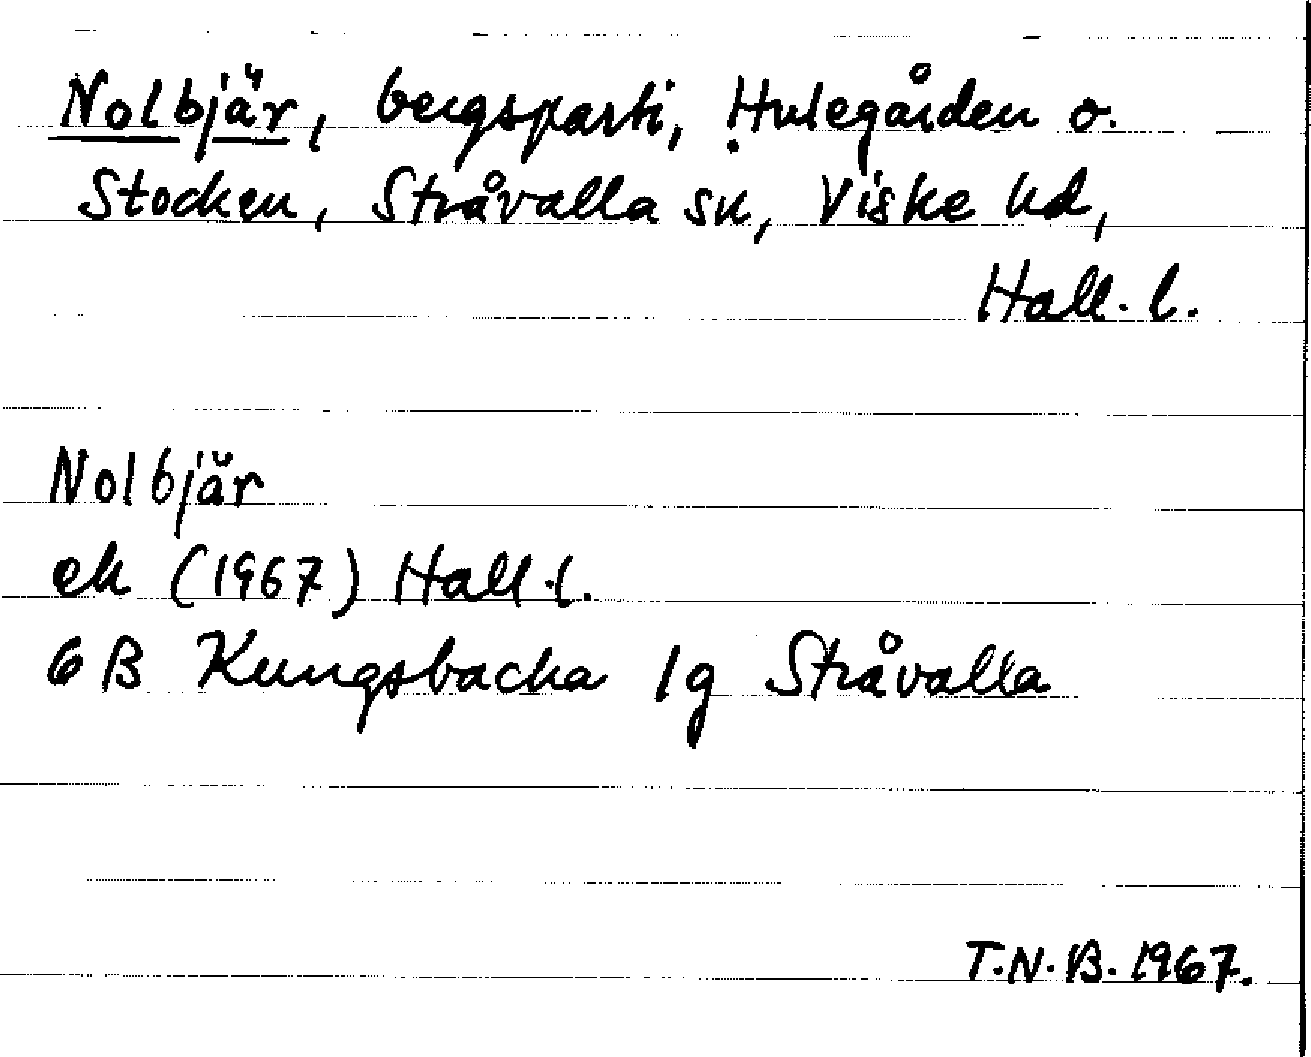 Nolbjär, bergsparti, Hulegården o.
Stocken, Stråvalla sn, Viske hd,
Hall. l.
Nolbjär
ek (1967) Hall. l.
6 B Kungsbacka 1g Stråvalla
T.N.B. 1967.